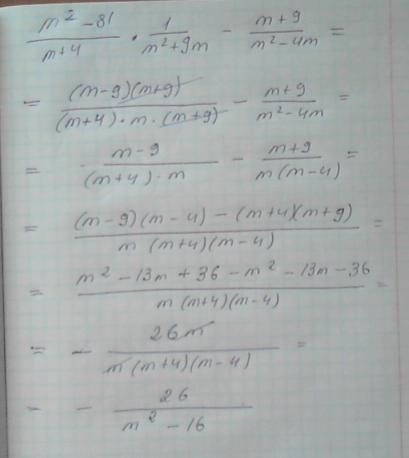 (m² - 81)/(m+4) · 1/(m²+9m) - (m+9)/(m²-4m) =
= ((m-9)(m+9))/((m+4)·m·(m+9)) - (m+9)/(m²-4m) =
= (m-9)/((m+4)·m) - (m+9)/(m(m-4)) =
= ((m-9)(m-4) - (m+4)(m+9))/(m(m+4)(m-4)) =
= (m² - 13m + 36 - m² - 13m - 36)/(m(m+4)(m-4)) =
= - 26m/(m(m+4)(m-4)) =
- - 26/(m² - 16)